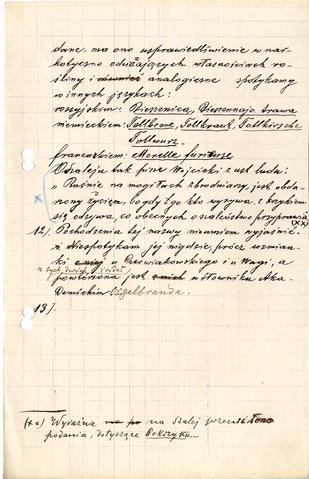 dane ma ono usprawiedliwienie w nar-
kotyczno odurzających własnościach ro-
śliny i również analogiczne spotykamy
w innych językach:
rosyjskim: Biessenica, Biessennaja trawa
niemieckiem: Tollbeere, Tollkraut, Tollkirsche
Tollwurz
francuskiem: Morelle furieuse
O szaleju tak pisze Wójcicki z ust ludu:
"Rośnie na mogiłach zbrodniarzy, jest obda-
rzony życiem, bo gdy kto wyrywa, z krzykiem
się odzywa, co obecnych o szaleństwo przyprawia"
(xx)
12) Pochodzenia tej nazwy nieumiem wyjaśnić.
Niespotykam jej nigdzie, prócz wzmian-
ki o niej u Czerwiakowskiego i u Wagi, a
z tych dwóch źródeł
powtórzona jest w Słowniku Aka-
demickim Orgelbranda.
13)
(xx) Wyraźne na szalej przeniesiono
podania, dotyczące Pokrzyku.